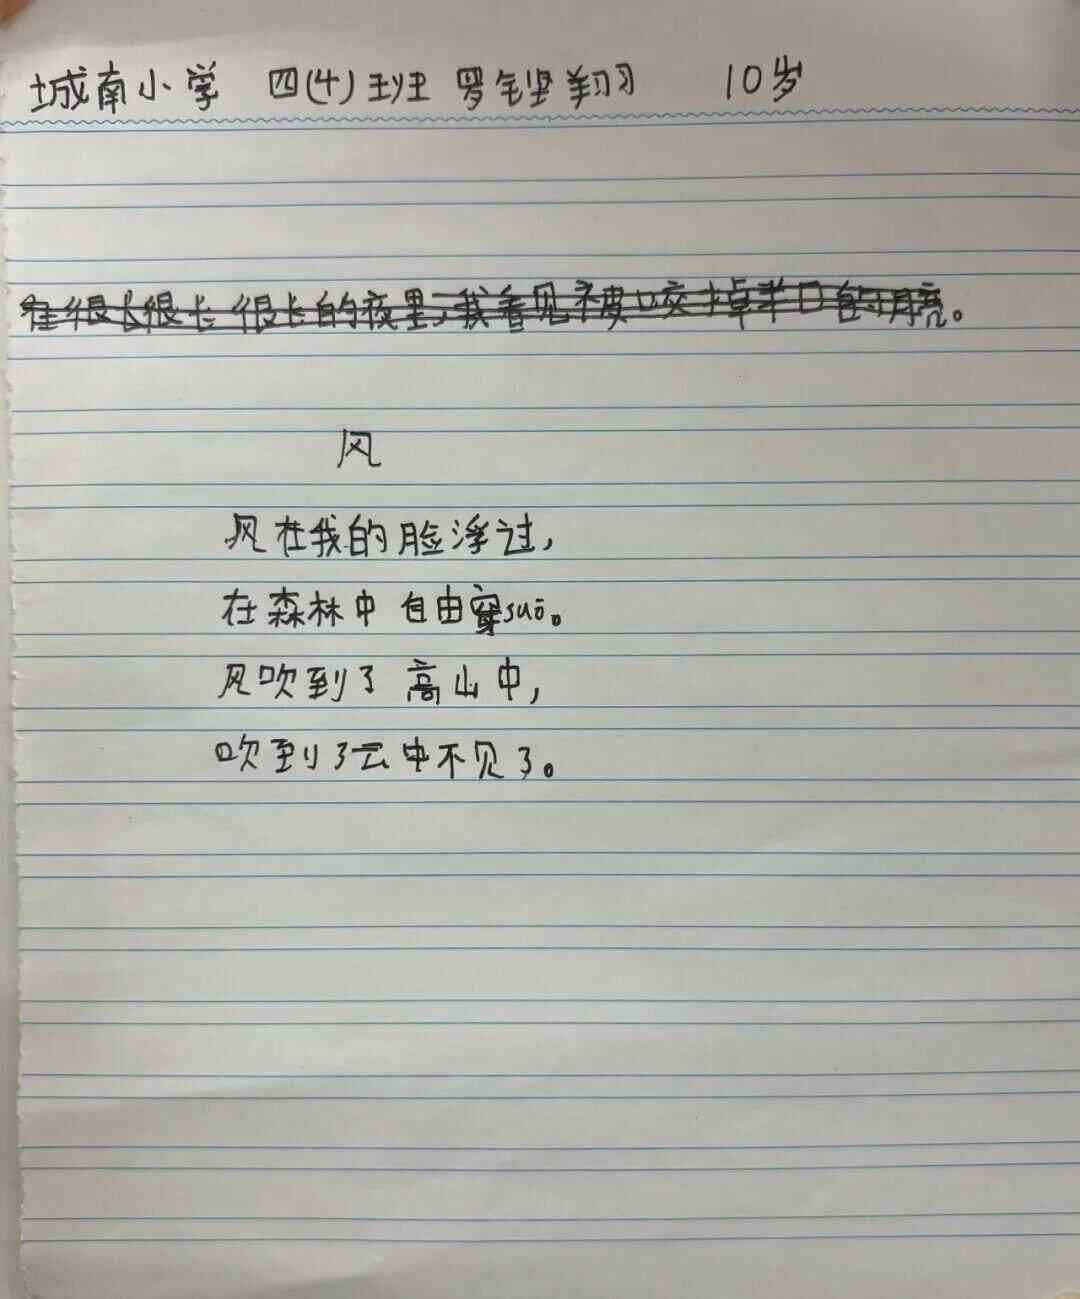 城南小学 四(4)班 罗 翔 10岁
在很长很长很长的夜里,我看见被咬掉半口的月亮。
风
风在我的脸浮过,
在森林中自由穿suō。
风吹到了高山中,
吹到了云中不见了。